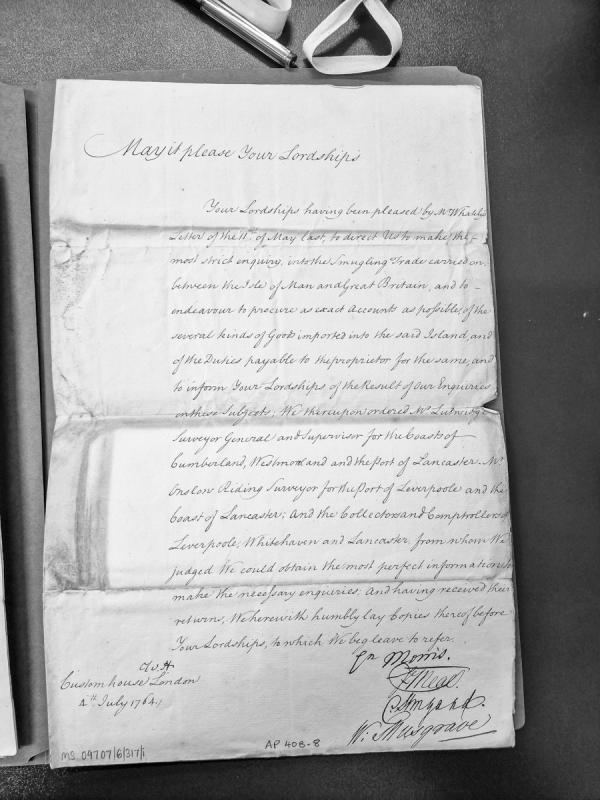 May it please Your Lordships
Your Lordships having been pleased by Mr. Whatelis
Letter of the 11th. of May last, to direct Us to make the
most strict enquiry, into the Smugling Trade carried on
between the Isle of Man and Great Britain, and to
endeavour to procure as exact Accounts as possible, of the
several kinds of Goods imported into the said Island, and
of the Duties payable to the proprietor for the same, and
to inform Your Lordships of the Result of Our Enquiries
on these Subjects; We thereupon ordered Mr. Lutwidge
Surveyor General and Supervisor for the Coasts of
Cumberland, Westmorland and the Port of Lancaster. Mr.
Onslow Riding Surveyor for the Port of Leverpoole and the
Coast of Lancaster; And the Collectors and Comptrollers of
Leverpoole, Whitehaven and Lancaster, from whom We
judged We could obtain the most perfect information, to
make the necessary enquiries; And having received their
returns, We herewith humbly lay Copies thereof before
Your Lordships, to which We beg leave to refer.
Customhouse London
4th. July 1764
Morris.
W: Musgrave
MS 09707/6/317/1
AP 40B-8